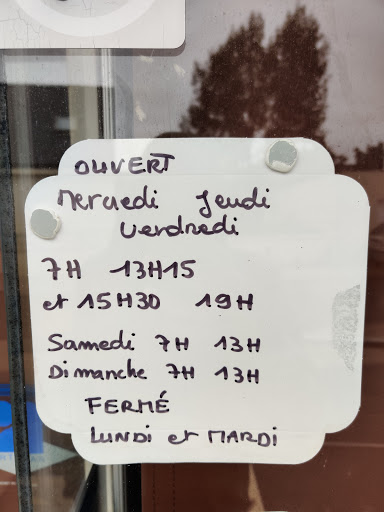 OUVERT
Mercredi Jeudi
Vendredi
7H 13H15
et 15H30 19H
Samedi 7H 13H
Dimanche 7H 13H
FERMÉ
LUNDI et MARDI